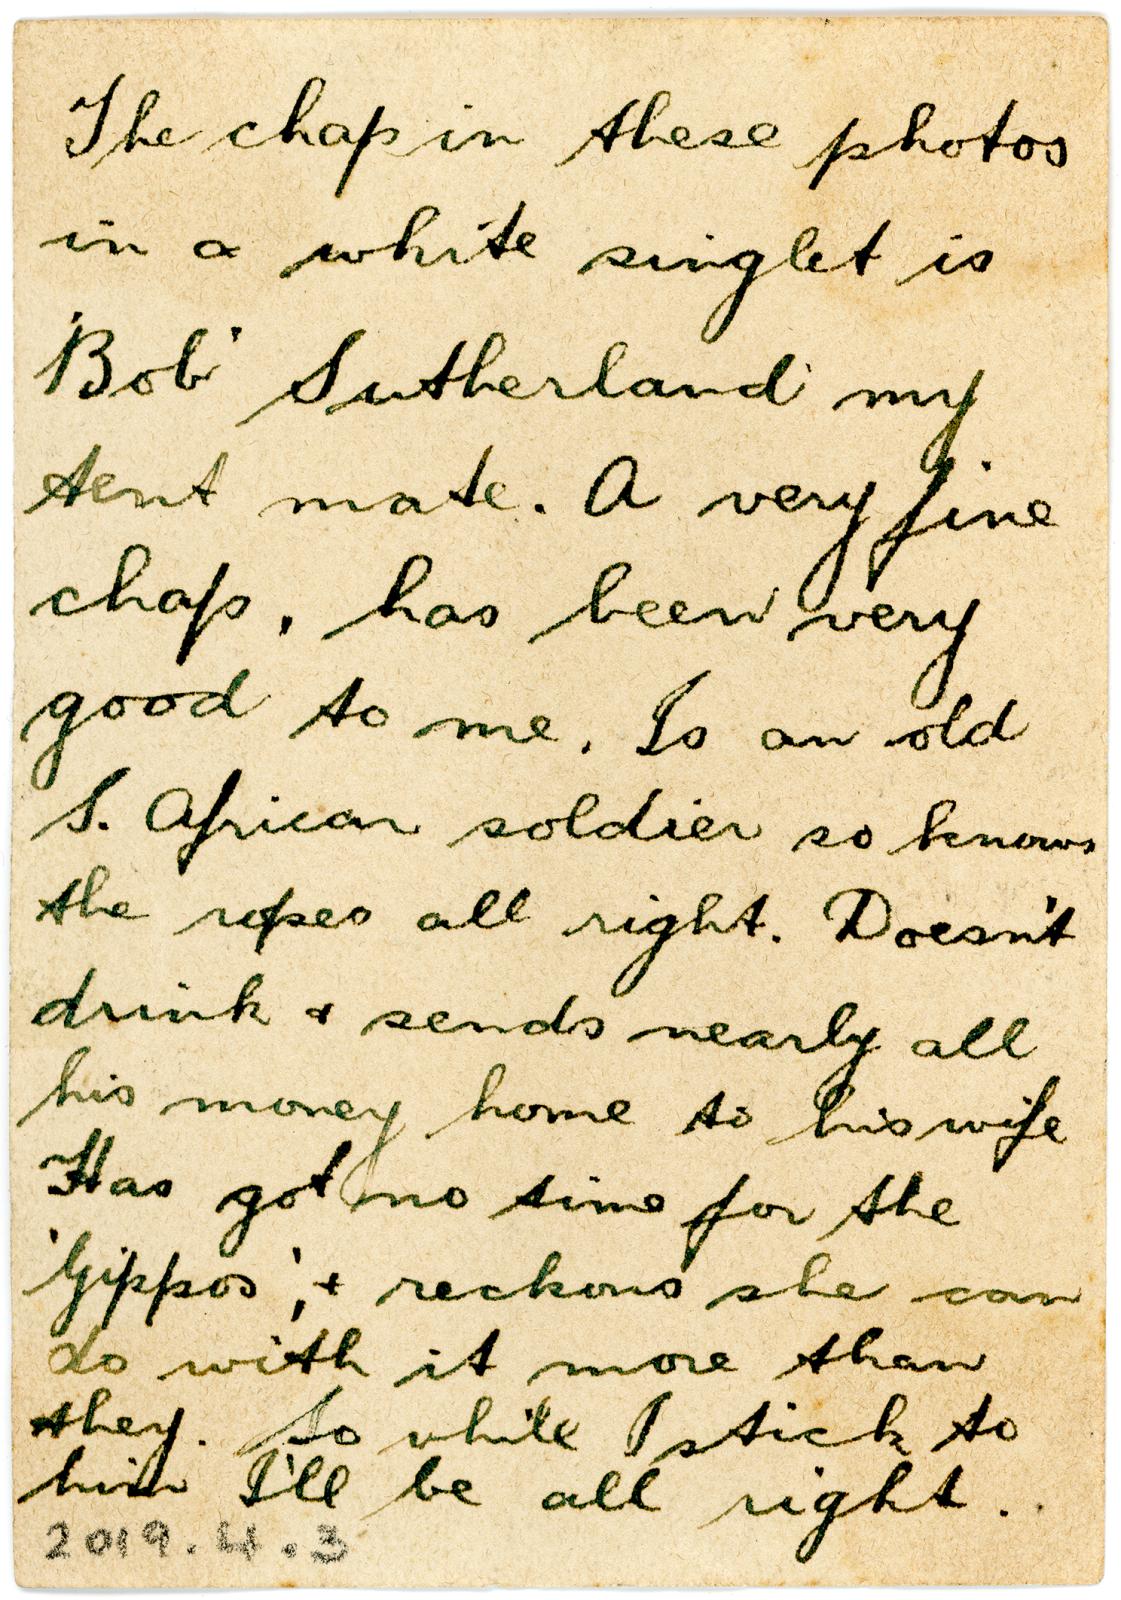 The chap in these photos
in a white singlet is
'Bob' Sutherland my
tent mate. A very fine
chap, has been very
good to me. Is an old
S. African soldier so knows
the ropes all right. Doesn't
drink & sends nearly all
his money home to his wife
Has got no time for the
'Gippos', + reckons she can
do with it more than
they. So while I stick to
him I'll be all right.
2019.4.3